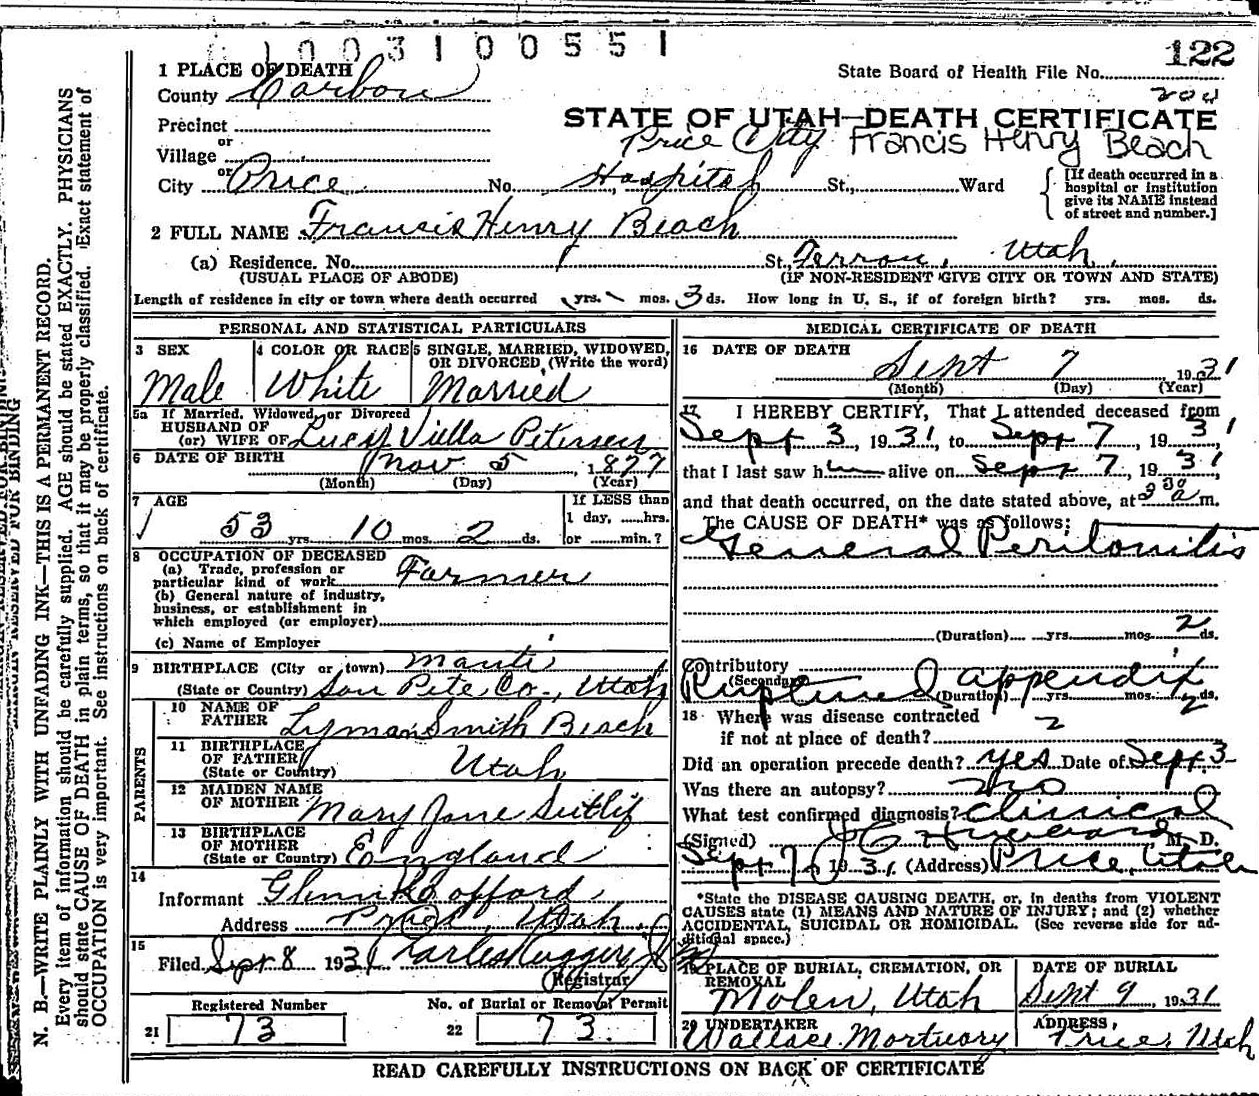 1003100551
122
1 PLACE OF DEATH
State Board of Health File No.
County Carbon
200
STATE OF UTAH—DEATH CERTIFICATE
Precinct
Price City Francis Henry Beach
or
Village
or
City Price No. Hospital St., Ward
[If death occurred in a hospital or institution give its NAME instead of street and number.]
2 FULL NAME Francis Henry Beach
(a) Residence. No. St., Ferron, Utah.
(USUAL PLACE OF ABODE) (IF NON-RESIDENT GIVE CITY OR TOWN AND STATE)
Length of residence in city or town where death occurred yrs. mos. 3 ds. How long in U. S., if of foreign birth? yrs. mos. ds.
PERSONAL AND STATISTICAL PARTICULARS
3 SEX Male
4 COLOR OR RACE White
5 SINGLE, MARRIED, WIDOWED, OR DIVORCED, (Write the word) Married
5a If Married, Widowed, or Divorced
HUSBAND OF
(or) WIFE OF Lucy Villa Petersen
6 DATE OF BIRTH Nov 5, 1877
(Month) (Day) (Year)
7 AGE
If LESS than
1 day, hrs.
or min.?
53 yrs. 10 mos. 2 ds.
8 OCCUPATION OF DECEASED
(a) Trade, profession or
particular kind of work Farmer
(b) General nature of industry,
business, or establishment in
which employed (or employer)
(c) Name of Employer
9 BIRTHPLACE (City or town) Manti
(State or Country) San Pete Co., Utah
PARENTS
10 NAME OF FATHER Lyman Smith Beach
11 BIRTHPLACE OF FATHER (State or Country) Utah
12 MAIDEN NAME OF MOTHER Mary Jane Sutlif
13 BIRTHPLACE OF MOTHER (State or Country) England
14
Informant Glenn Cofford
Address Price, Utah.
15
Filed Sept 8 1931
Registrar
Registered Number No. of Burial or Removal Permit
21 73 22 73
MEDICAL CERTIFICATE OF DEATH
16 DATE OF DEATH
Sept 7 1931
(Month) (Day) (Year)
17 I HEREBY CERTIFY, That I attended deceased from
Sept 3, 1931, to Sept 7, 1931
that I last saw him alive on Sept 7, 1931
and that death occurred, on the date stated above, at 3 30 a m.
The CAUSE OF DEATH* was as follows:
General Peritonitis
(Duration) yrs. mos. 2 ds.
Contributory
(Secondary)
Ruptured appendix
(Duration) yrs. mos. 2 ds.
18 Where was disease contracted
if not at place of death? 2
Did an operation precede death? yes Date of Sept 3
Was there an autopsy? no
What test confirmed diagnosis? Clinical
(Signed) M. D.
Sept 7 1931 (Address) Price, Utah
*State the DISEASE CAUSING DEATH, or, in deaths from VIOLENT
CAUSES state (1) MEANS AND NATURE OF INJURY; and (2) whether
ACCIDENTAL, SUICIDAL OR HOMICIDAL. (See reverse side for ad-
ditional space.)
19 PLACE OF BURIAL, CREMATION, OR REMOVAL
Molen, Utah
DATE OF BURIAL
Sept 9, 1931
20 UNDERTAKER
Wallace Mortuary
ADDRESS,
Price, Utah
READ CAREFULLY INSTRUCTIONS ON BACK OF CERTIFICATE
MARGIN RESERVED FOR BINDING
N. B.—WRITE PLAINLY WITH UNFADING INK—THIS IS A PERMANENT RECORD.
Every item of information should be carefully supplied. AGE should be stated EXACTLY. PHYSICIANS
should state CAUSE OF DEATH in plain terms, so that it may be properly classified. Exact statement of
OCCUPATION is very important. See instructions on back of certificate.